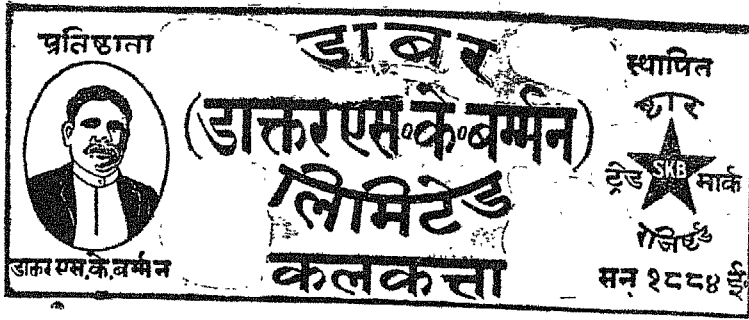 प्रतिष्ठाता
डाक्तर एस.के.बर्म्मन
डाबर
(डाक्तर एस॰के॰बर्म्मन)
लिमिटेड
कलकत्ता
स्थापित
ष्टार
SKB
ट्रेड मार्क
रेजिष्टर्ड
सन् १८८४